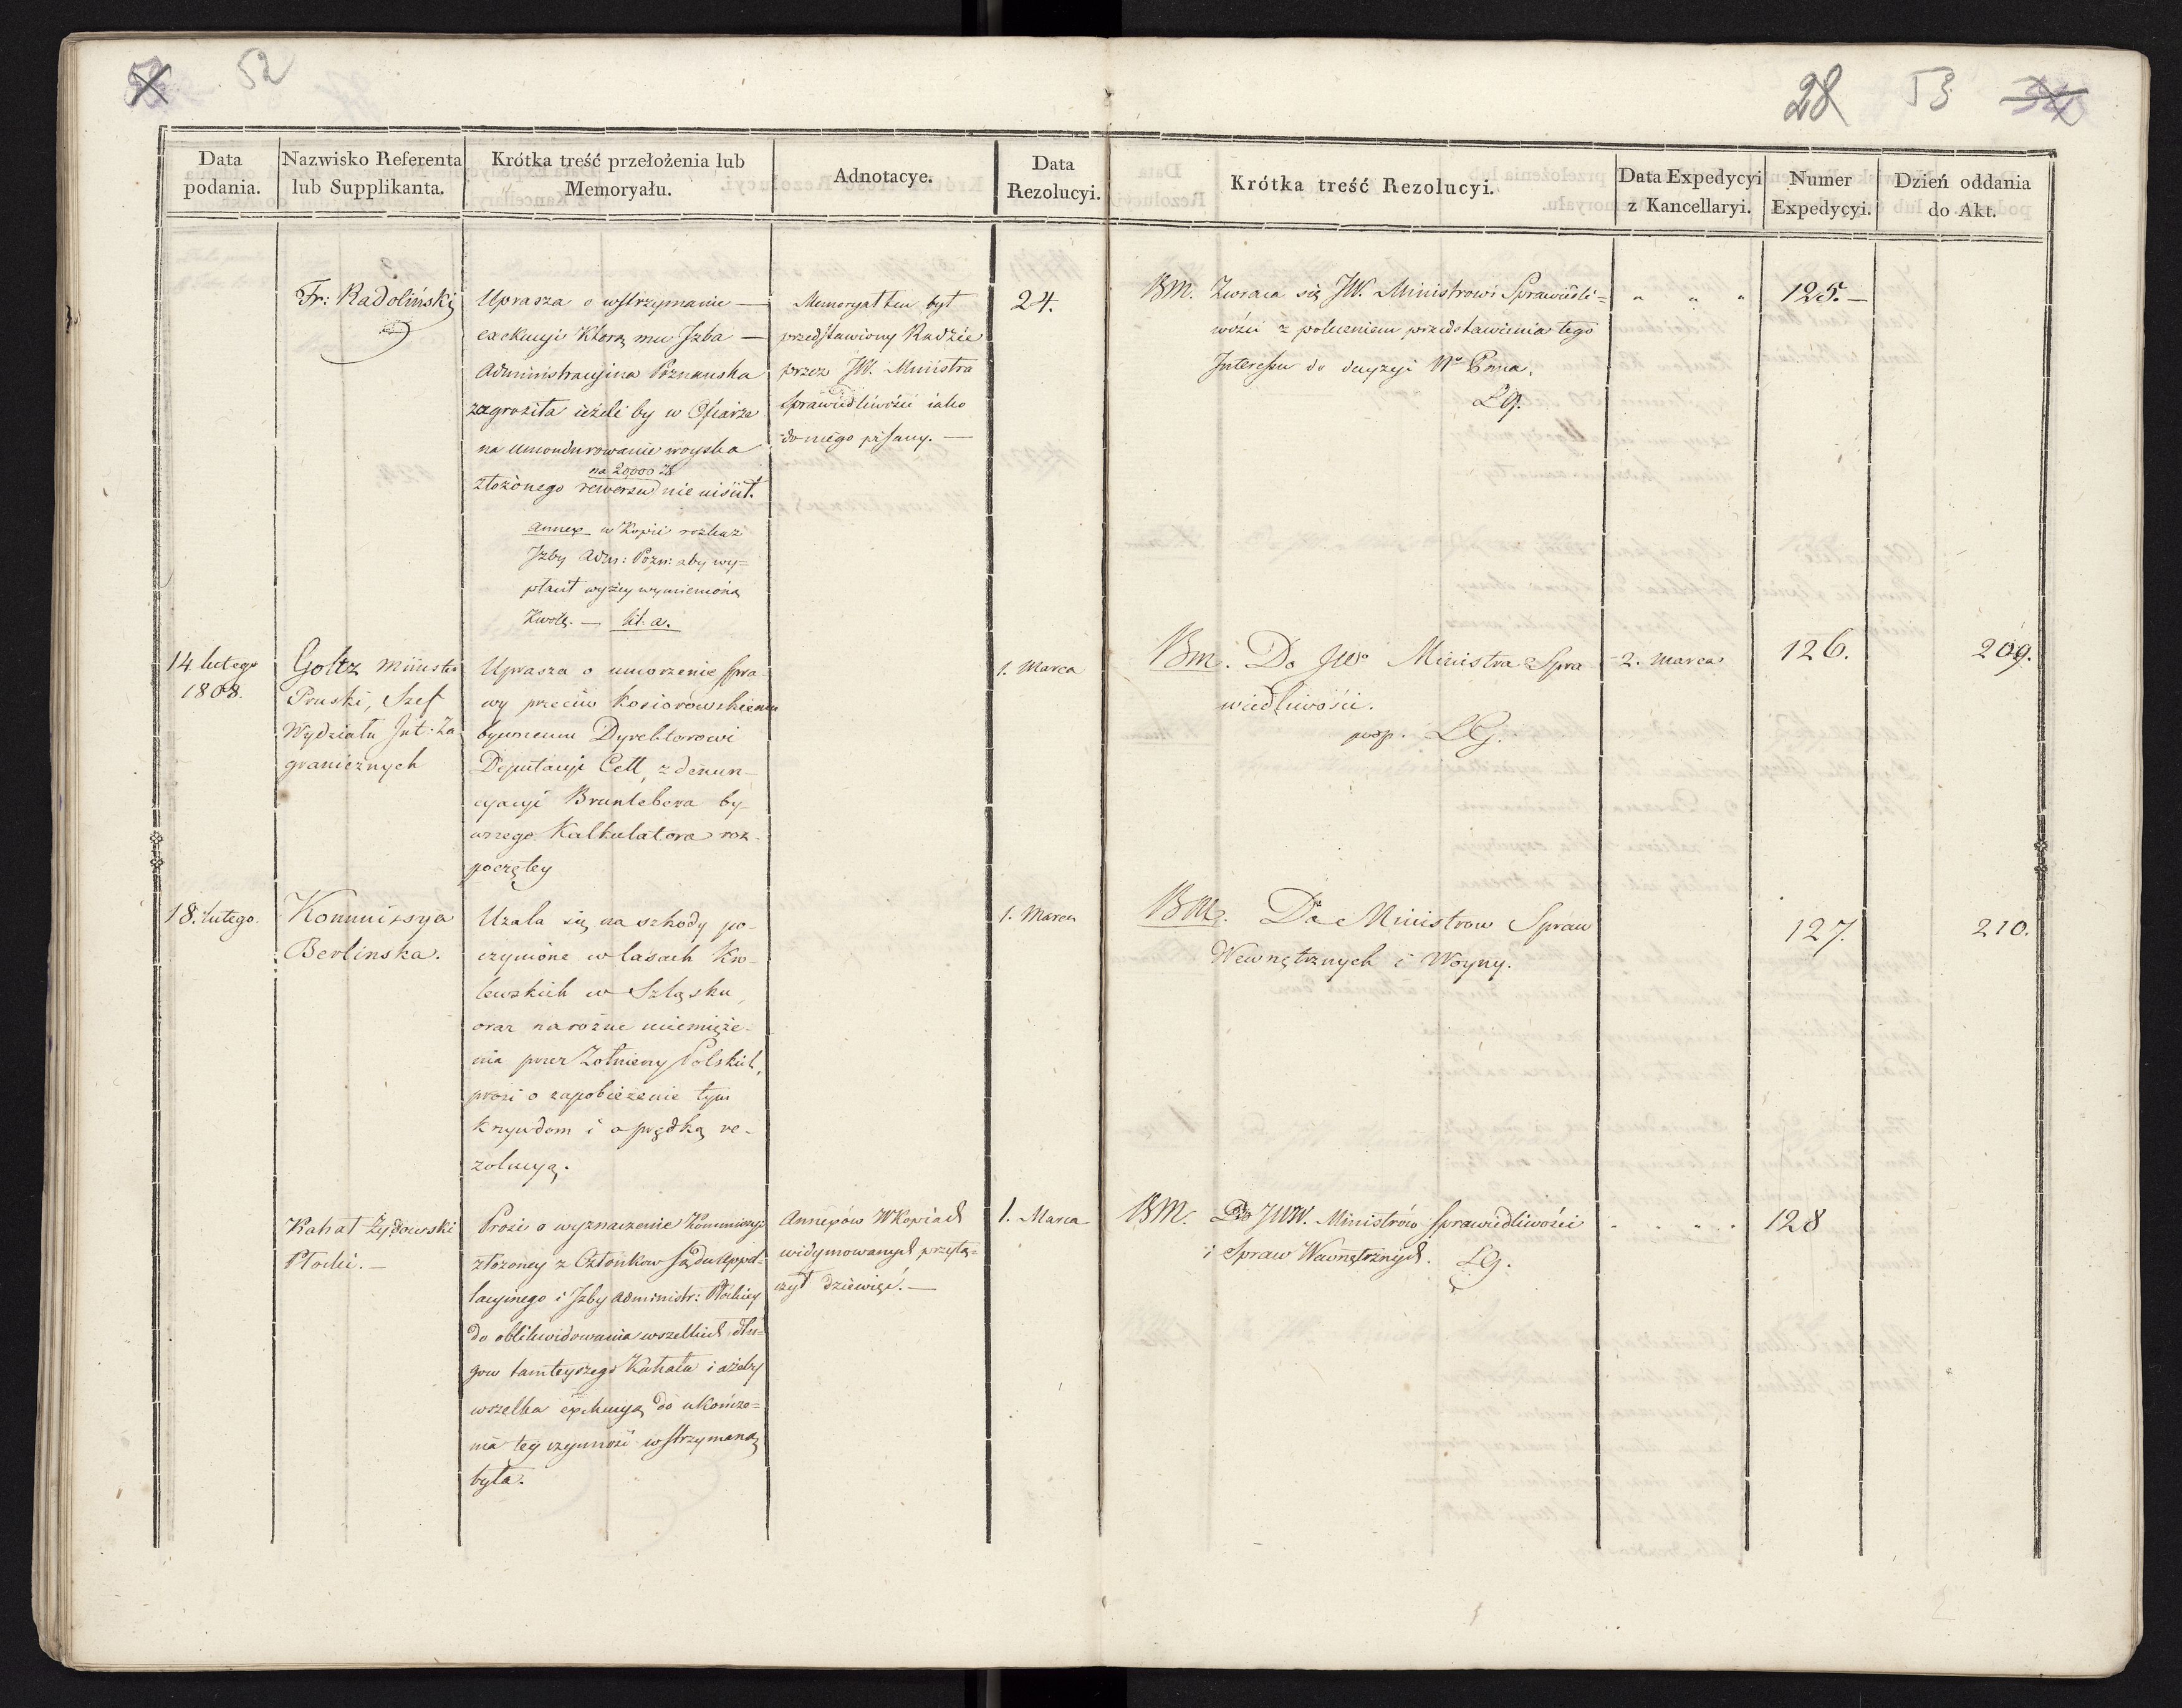 52
28 53
Data podania.
Nazwisko Referenta lub Supplikanta.
Krótka treść przełożenia lub Memoryału.
Adnotacye.
Data Rezolucyi.
Krótka treść Rezolucyi.
Data Expedycyi z Kancellaryi.
Numer Expedycyi.
Dzień oddania do Akt.
Fr: Radoliński
Uprasza o wstrzymanie —
exekucyi Którą mu Jzba —
Administracyina Poznanska
zagroziła ieżeli by w Ofiarze
na umondurowanie woyska
na 20000 Zł
złożonego rewersu nie uiścił.
annex w Kopii rozkaz
Jzby Adm: Pozn: aby wy=
płacił wyżey wymienioną
Kwotę. — lit. a.
Memoryał ten był
przedstawiony Radzie
przez JW. Ministra
Sprawiedliwości iako
do niego pisany. —
24.
BM. Zwraca się JW. Ministrowi Sprawiedli=
wości z poleceniem przedstawienia tego
Interessu do decyzyi
LG.
" " "
125. —
14 lutego
1808.
Goltz Minister
Pruski, Szef
Wydziału Int: Za
granicznych
Uprasza o umorzenie spra
wy przeciw Kosiorowskiemu
bywszemu Dyrektorowi
Deputacyi Cell, z denun-
cyacyi Bruntlebera by-
wszego Kalkulatora roz-
poczętey
1. Marca
BM. Do JWo Ministra Spra
wiedliwości.
LG.
2. Marca
126.
209.
18. lutego.
Kommissya
Berlinska.
Uzala się na szkody po-
czynione w lasach Kró-
lewskich w Szląsku,
oraz na rożne uciemięże-
nia przez Zołnierzy Polskich,
prosi o zapobieżenie tym
krzywdom i o prędką re-
zolucyą.
1. Marca
BM. Do Ministrow Spraw
Wewnętrznych i Woyny.
127.
210.
Kahał Żydowski
Płocki. —
Prosi o wyznaczenie Kommissyi
złożoney z Członkow Sądu Appel=
lacyinego i Jzby Administr: Płockiey
do oblikwidowania wszelkich dłu=
gow tamteyszego Kahału i ażeby
wszelka exekucya do ukończe=
nia tey czynności wstrzymaną
była.
Annexów W Kopiach
widymowanych przyłą=
czył dziewięć. —
1. Marca
BM. Do JWW. Ministrów Sprawiedliwości
i Spraw Wewnętrznych. LG.
128